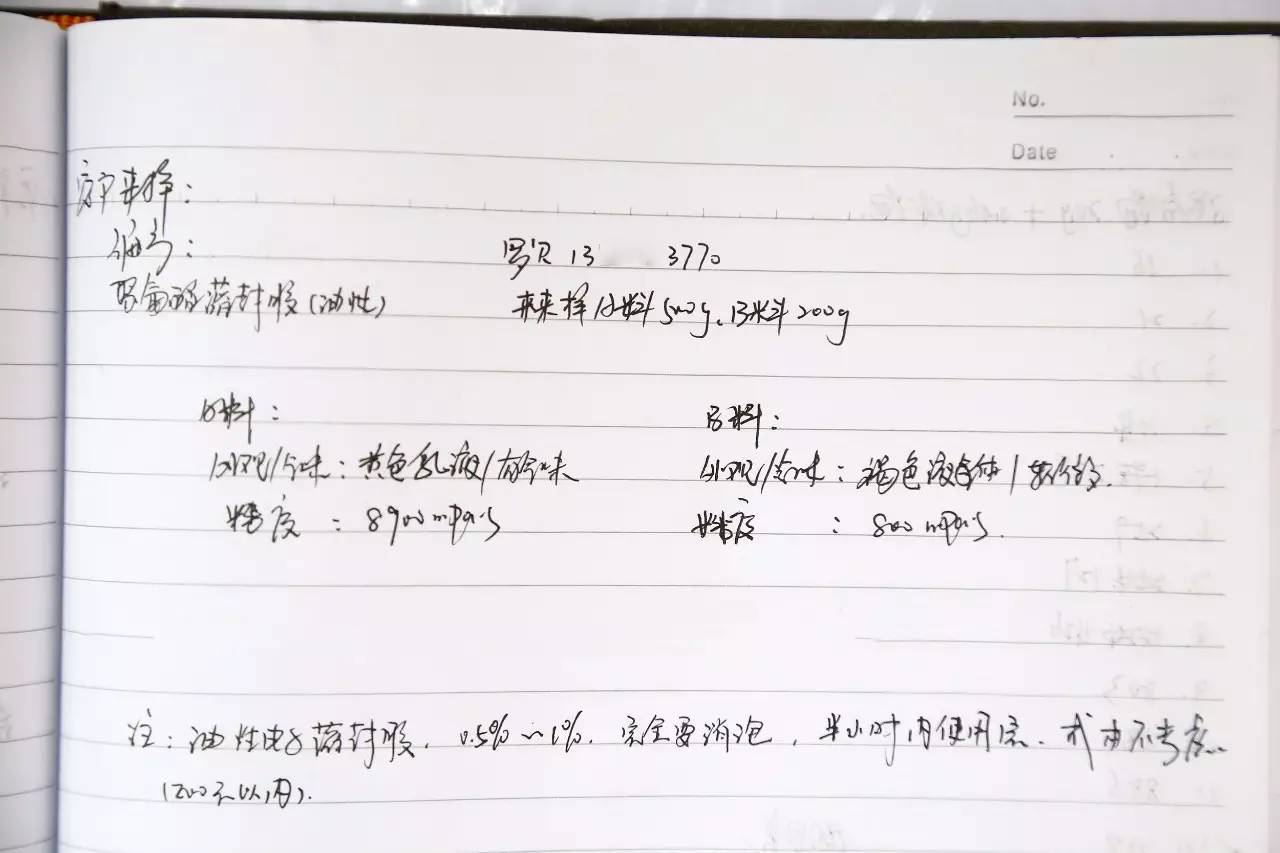 No.
Date
客户来样：
编号： 罗贝 13 3770
聚氨酯灌封胶(油性) 来样A料500g、B料200g
A料： B料：
外观/气味：黄色乳液/有气味 外观/气味：褐色液体/
粘度：8900mpa·s 粘度：800mpa·s.
注：油性电子灌封胶，0.5%~1%. 完全要消泡，半小时内使用完. 成本不考虑..
(200元以内).